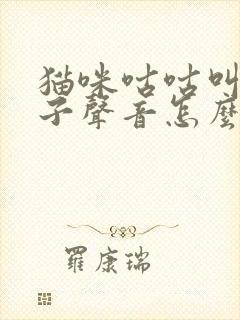 猫咪咕咕叫
子聲音怎麼
羅康瑞